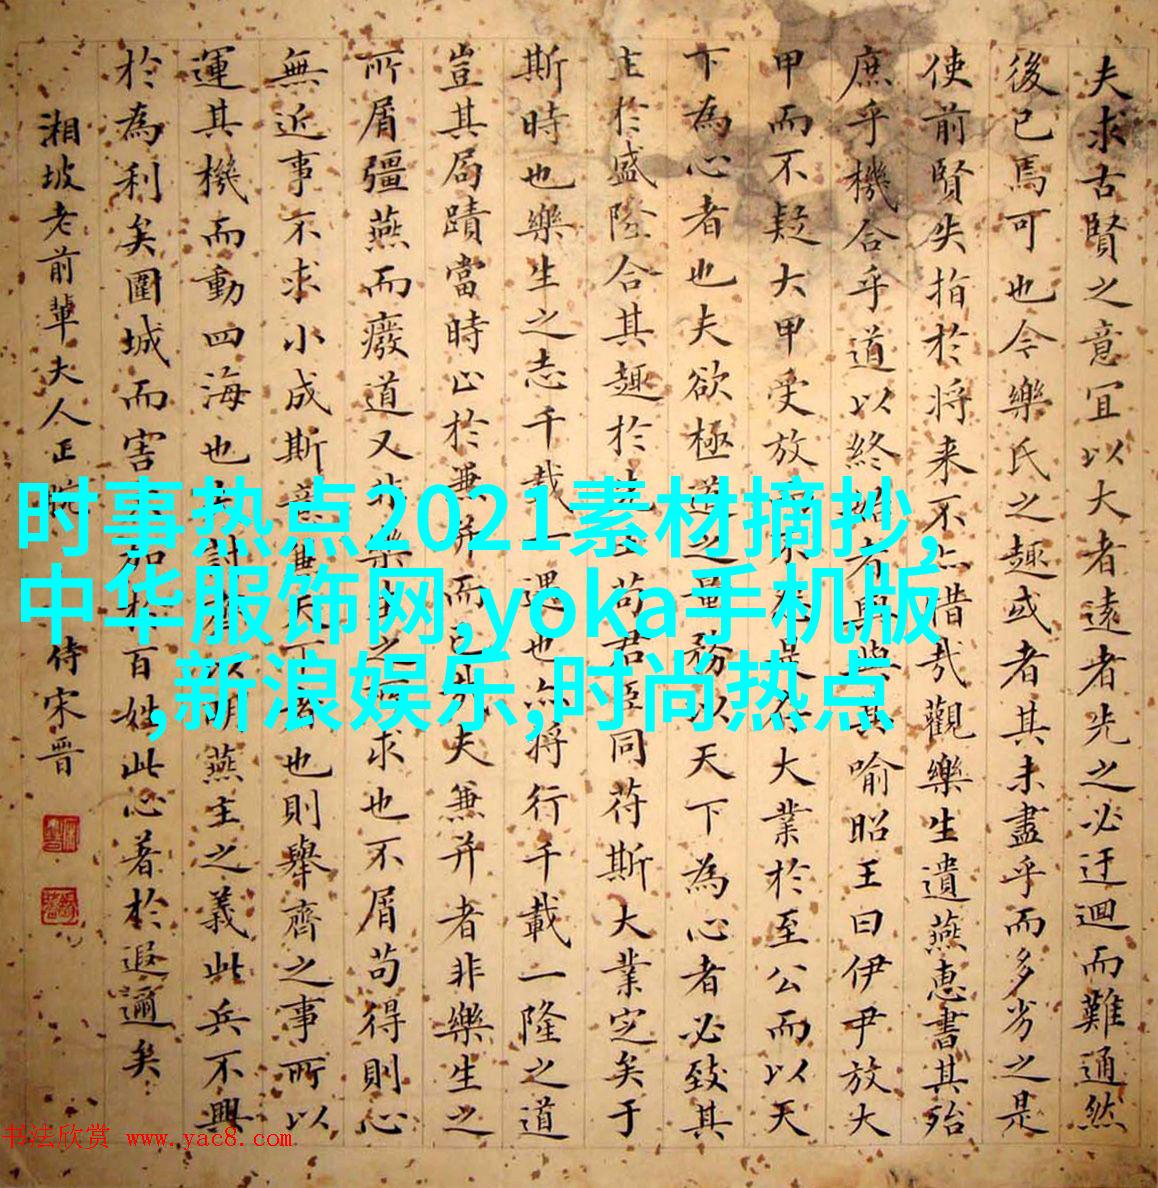 夫求古賢之意宜以大者遠者先之必迂迴而難通然
後已焉可也今樂氏之趣或者其未盡乎而多劣之是
使前賢失指於將来不亦惜哉觀樂生遺燕惠書其殆
庶乎機合乎道以終始者與與其喻昭王曰伊尹放大
甲而不疑大甲受放而不怨是存大業於至公而以天
下為心者也夫欲極道之量務以天下為心者必致其
主於盛隆合其趣於先王苟君臣同苻斯大業定矣于
斯時也樂生之志千載一遇也亦將行千載一隆之道
豈其局蹟當時止於兼并而已哉夫兼并者非樂生之
所屑彊燕而廢道又非樂生之所求也不屑苟得則心
無近事不求小成斯意兼天下者也則舉齊之事所以
運其機而動四海也夫討齊以明燕主之義此兵不興
於為利矣圍城而害不加於百姓此心著於遐邇矣
湘坡老前輩夫人正 侍宋晋
时事热点2021素材摘抄,
中华服饰网,yoka手机版
,新浪娱乐,时尚热点
书法欣赏 www.yac8.com